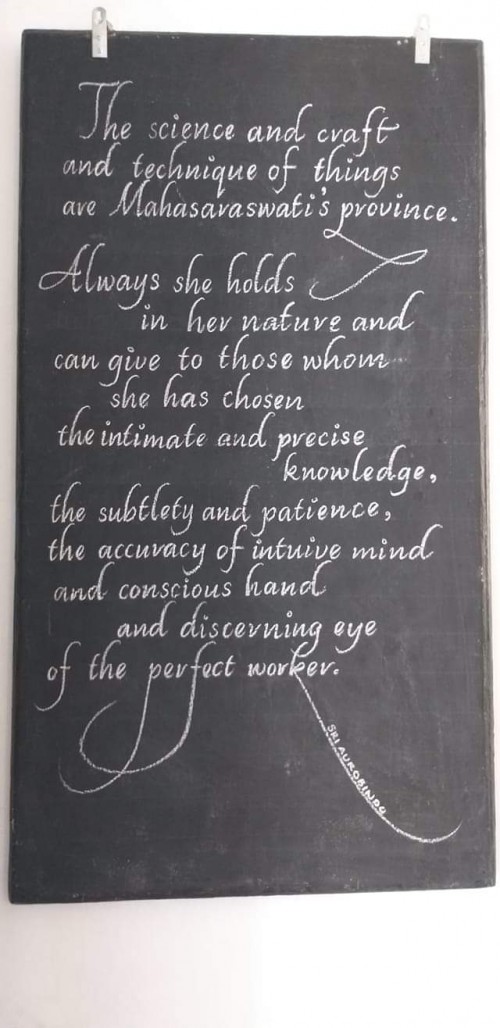 The science and craft
and technique of things
are Mahasaraswati's province.
Always she holds
in her nature and
can give to those whom
she has chosen
the intimate and precise
knowledge,
the subtlety and patience,
the accuracy of intuive mind
and conscious hand
and discerning eye
of the perfect worker.
SRI AUROBINDO